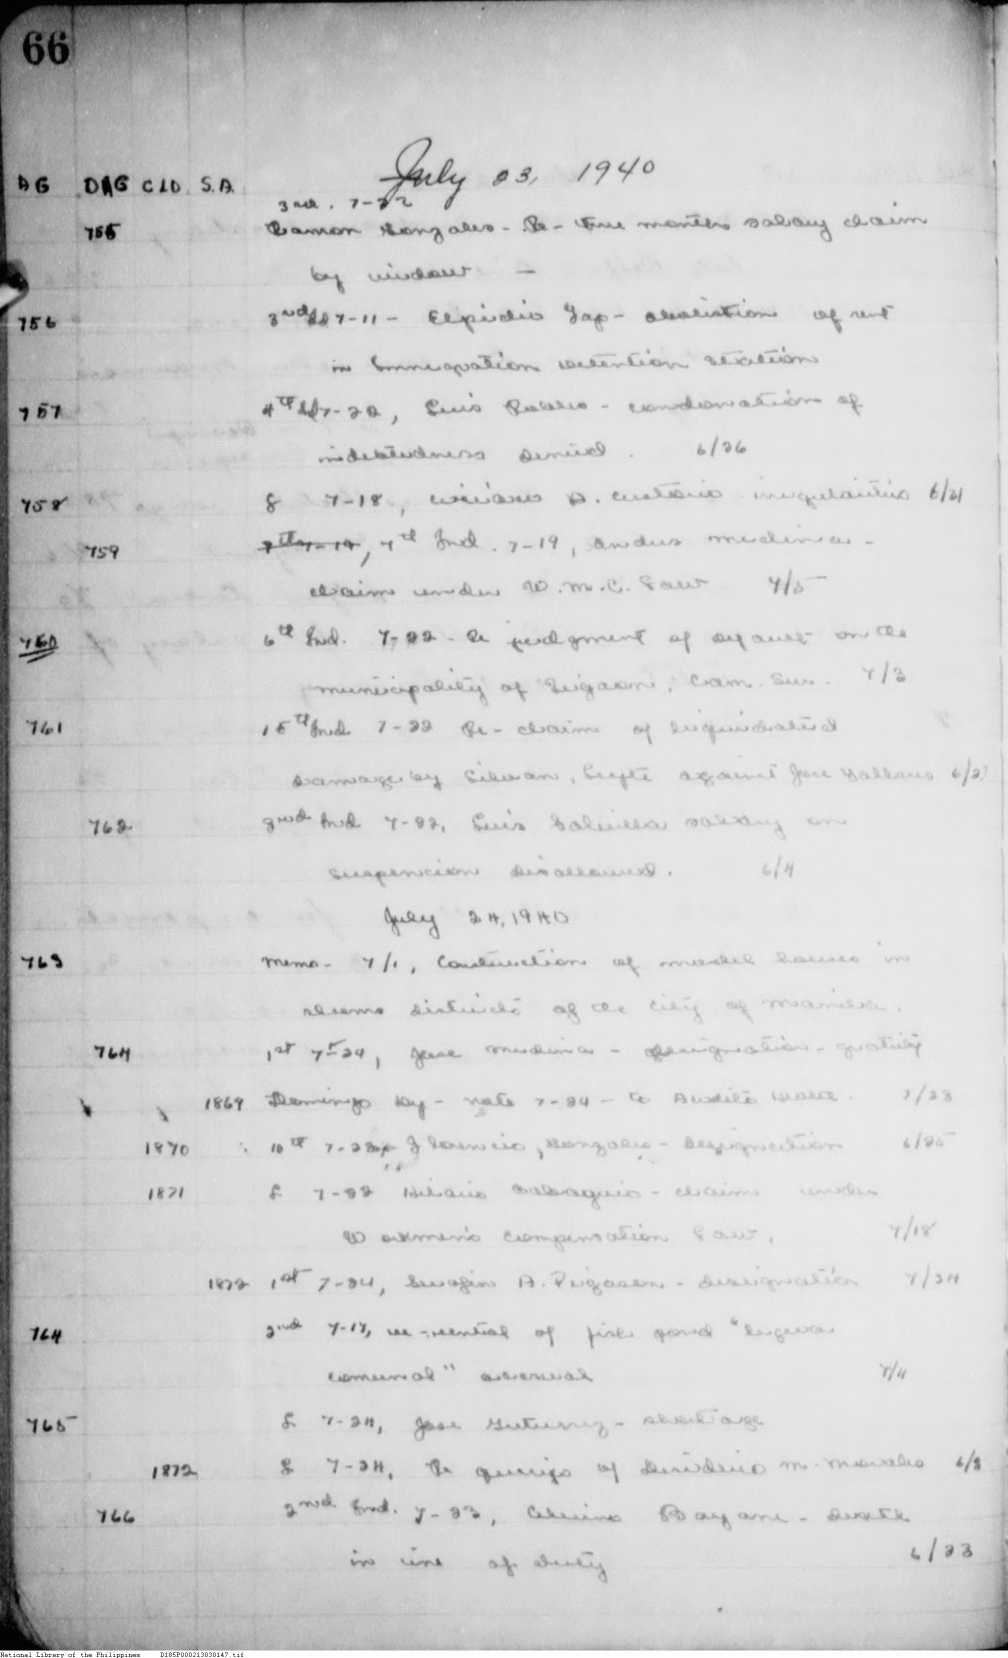 66
July 23, 1940
AG DAG CID S.A.
3rd. 7-22
755 Ramon Gonzales - Re - five months salary claim
by widow -
756 2nd 7-11 - Elpidio Yap - abolition of rent
in Immigration detention station
757 4th 7-22, Luis Pablo - condonation of
indebtedness denied. 6/26
758 L 7-18, A. Custodio irregularities 6/21
759 7th Ind. 7-19, Andres Medina -
claim under W.M.C. Law 7/5
760 6th Ind. 7-22 - Re judgment of default on the
municipality of Sigaon, Cam. Sur. 7/3
761 15th Ind 7-22 Re - claim of liquidated
damage by Leyte against Jose
762 2nd Ind 7-22, Luis salary on
suspencion disallowed. 6/4
July 24, 1940
763 Memo - 7/1, Construction of model houses in
slums districts of the City of Manila.
764 1st 7-24, Jose Medina - designation - gratuity
1869 Domingo Dy - note 7-24 - to 7/23
1870 10th 7-23 Florencio Gonzales - designation 6/25
1871 L 7-22 Hilario - claim under
Workmen's Compensation Law, 7/18
1872 1st 7-24, Serafin A. - designation 7/24
764 2nd 7-17, re-rental of fish pond "
comunal" 7/11
765 L 7-24, Jose Gutierrez - shortage
1872 L 7-24, Re of M. Morales 6/8
766 2nd Ind. 7-23, Bayani - death
in line of duty 6/23
National Library of the Philippines D185P000213030147.tif